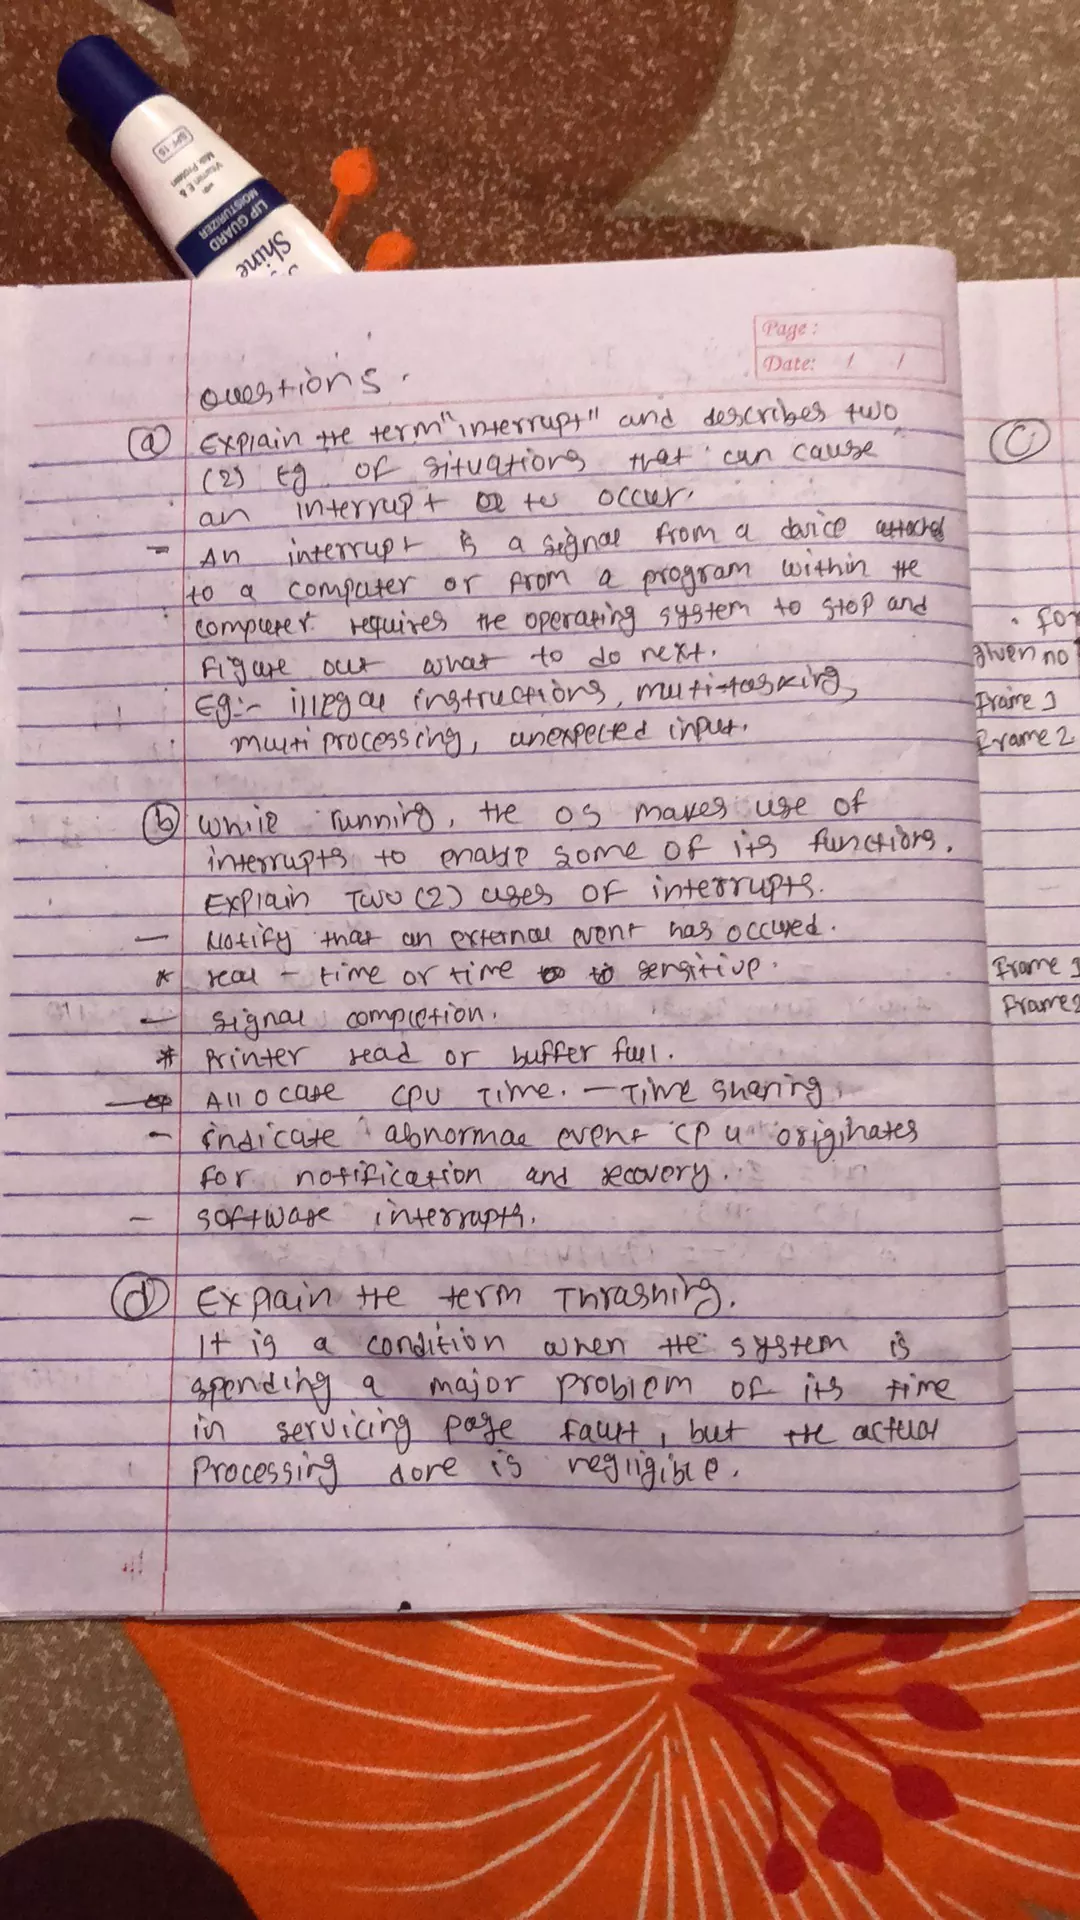 SPF-15
with
Vitamin E &
Milk Protein
LIP GUARD
MOISTURIZER
Shine
Page :
Date: / /
Questions.
(a) Explain the term "interrupt" and describes two
(2) Eg of situations that can cause
an interrupt to occur.
- An interrupt is a signal from a davice attached
to a computer or from a program within the
computer requires the operating system to stop and
Figure out what to do next.
Eg:- illegal instructions, multi-tasking,
multi processing, unexpected input.
(b) While running, the OS makes use of
interrupts to enable some of its functions.
Explain Two (2) uses of interrupts.
- Notify that an external event has occured.
* real - time or time to sensitive.
- signal completion.
* Printer read or buffer full.
Allocate CPU Time. - Time sharing
- indicate abnormal event CPU originates
for notification and recovery.
- software interrupts.
(d) Explain the term Thrashing.
It is a condition when the system is
spending a major problem of its time
in servicing page fault, but the actual
Processing done is negligible.
(C)
. for
given no
Frame 1
Frame 2
Frame 1
Frame 2